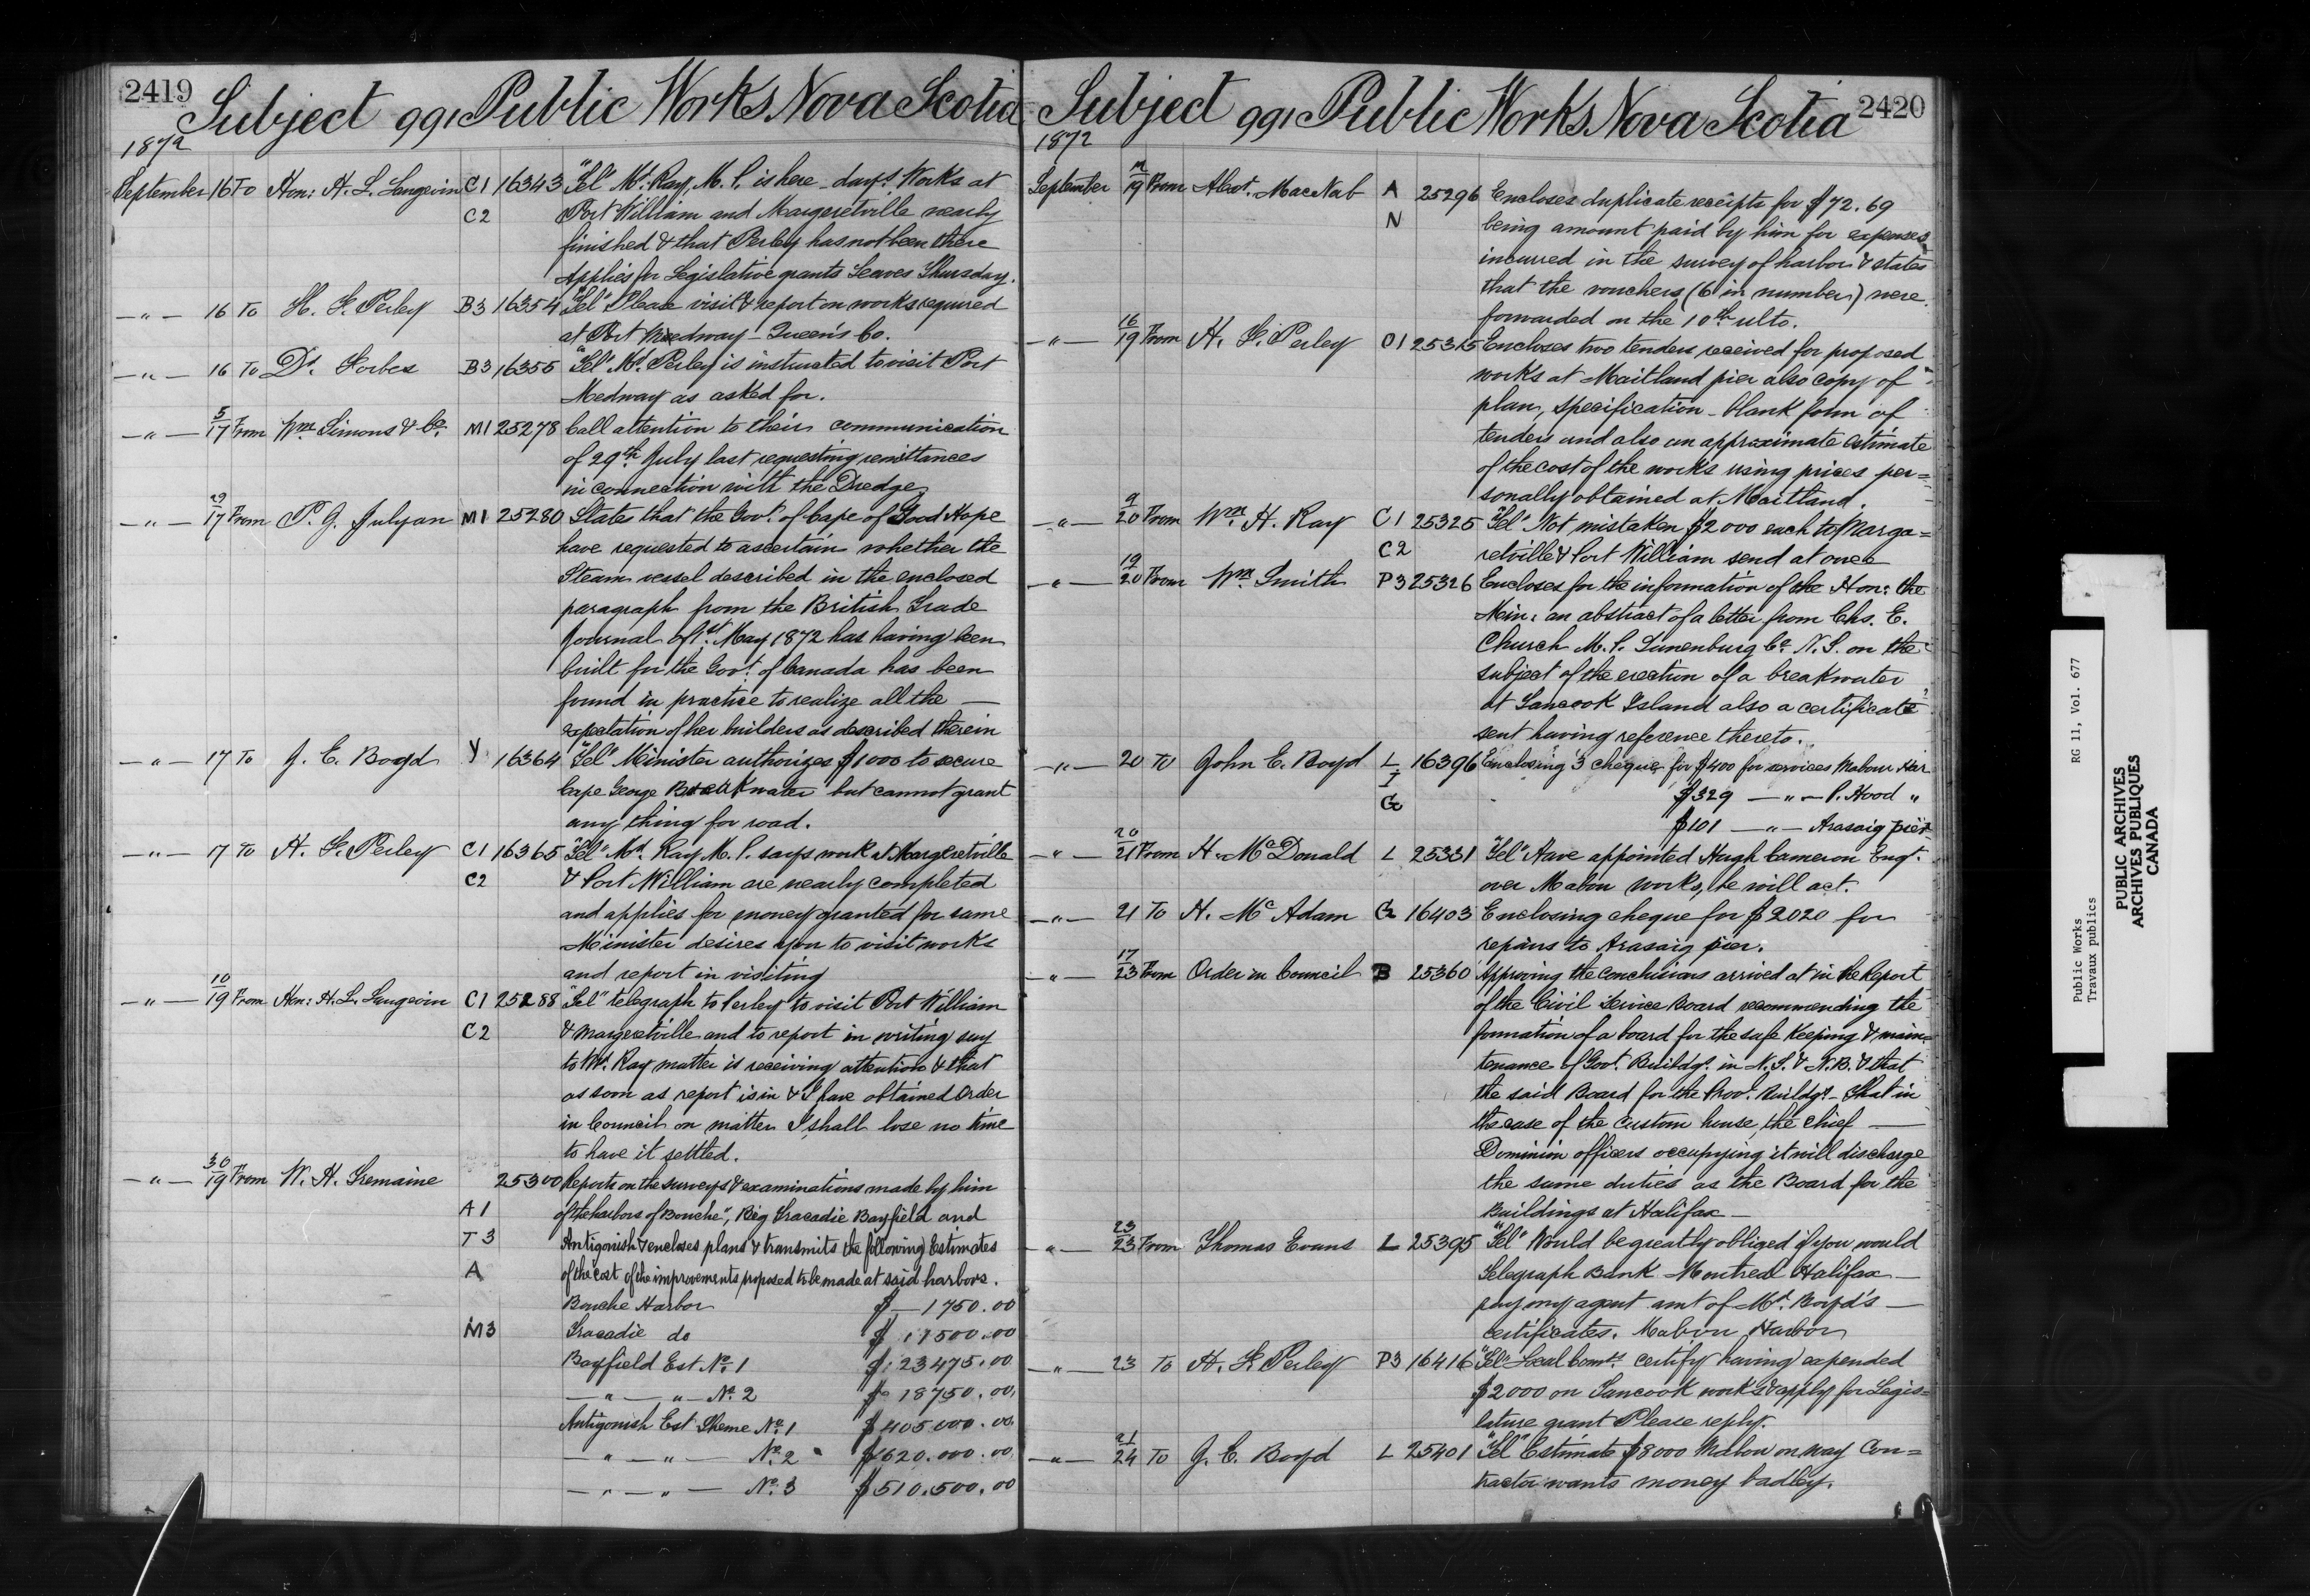 2419
Subject 991 Public Works Nova Scotia
1872
September 16 To Hon: H. L. Langevin C1 16343 "Tel" Mr. Ray, M. P. is here - says Works at
C2 Port William and Margeretville nearly
finished & that Perley has not been there
Applies for Legislative grants Leaves Thursday.
—"— 16 To H. F. Perley B3 16354 "Tel" Please visit & report on works required
at Port Medway - Queen's Co.
—"— 16 To Dr. Forbes B3 16355 "Tel" Mr. Perley is instructed to visit Port
Medway as asked for.
—"— 5/17 From Wm. Simons & Co. M1 25278 Call attention to their communication
of 29th July last requesting remittances
in connection with the Dredge
—"— 29/17 From P. G. Julyan M1 25280 States that the Govt. of Cape of Good Hope
have requested to ascertain whether the
Steam vessel described in the enclosed
paragraph from the British Trade
Journal of 1st May 1872 has having been
built for the Govt. of Canada has been
found in practice to realize all the —
expectation of her builders as described therein
—"— 17 To J. E. Boyd Y 16364 "Tel" Minister authorizes $1000 to secure
Cape George Breakwater but cannot grant
any thing for road.
—"— 17 To H. F. Perley C1 16365 "Tel" Mr. Ray M. P. says work at Margeretville
C2 & Port William are nearly completed
and applies for money granted for same
Minister desires you to visit works
and report in visiting
—"— 10/19 From Hon: H. L. Langevin C1 25288 "Tel" telegraph to Perley to visit Port William
C2 & Margeretville and to report in writing say
to Mr. Ray matter is receiving attention & that
as soon as report is in & I have obtained Order
in Council on matter I shall lose no time
to have it settled.
—"— 30/19 From W. H. Tremaine 25300 Reports on the surveys & examinations made by him
A1 of the harbors of Bouche", Big Tracadie Bayfield and
T3 Antigonish & encloses plans & transmits the following Estimates
A of the cost of the improvements proposed to be made at said harbors.
Bouche Harbor $ — 1750.00
M3 Tracadie do $ 17500.00
Bayfield Est No. 1 $ 23475.00
— " — " — No. 2 $ 18750.00
Antigonish Est Sheme No. 1 $ 405.000.00
— " — " — No. 2 $ 620.000.00
— " — " — No. 3 $ 510.500.00
2420
Subject 991 Public Works Nova Scotia
1872
September 19 From Alext. MacNab A 25296 Encloses duplicate receipts for $72.69
N being amount paid by him for expenses
incurred in the survey of harbor & states
that the vouchers (6 in number) were
forwarded on the 10th ulto.
—"— 16/19 From H. F. Perley O1 25315 Encloses two tenders received for proposed
works at Maitland pier also copy of
plan, specification - blank form of
tenders and also an approximate estimate
of the cost of the works using prices per=
sonally obtained at Maitland.
—"— 9/20 From Wm. H. Ray C1 25325 "Tel" Not mistaken $2000 each to Marga=
C2 retville & Port William send at once
—"— 19/20 From Wm. Smith P3 25326 Encloses for the information of the Hon: the
Min: an abstract of a letter from Chs. E.
Church M. P. Lunenburg Co. N. S. on the
subject of the erection of a breakwater
at Tancook Island also a certificate
sent having reference thereto.
—"— 20 To John E. Boyd L 16396 Enclosing 3 cheques for $400 for services Mabou Har
I $329 —"— P. Hood "
G $101 —"— Arasaig pier
—"— 20/21 From H. McDonald L 25331 "Tel" Have appointed Hugh Cameron Engr.
over Mabou works, he will act.
—"— 21 To H. McAdam G 16403 Enclosing cheque for $2020 for
repairs to Arasaig pier.
—"— 17/23 From Order in Council B 25360 Approving the conclusions arrived at in the Report
of the Civil Service Board recommending the
formation of a board for the safe keeping & main=
tenance of Govt. Buildgs. in N. S. & N. B. & that
the said Board for the Provl. Buildgs. - that in
the case of the Custom house, the chief —
Dominion officers occupying it will discharge
the same duties as the Board for the
Buildings at Halifax —
—"— 23/23 From Thomas Evans L 25395 "Tel" Would be greatly obliged if you would
Telegraph Bank Montreal Halifax —
pay my agent amt of Mr. Boyd's —
certificates. Mabou Harbor
—"— 23 To H. F. Perley P3 16416 "Tel" Local Comrs. certify having expended
$2000 on Tancook works & apply for Legis=
lature grant Please reply.
—"— 21/24 To J. E. Boyd L 25401 "Tel" Estimate $8000 Mabou on way Con=
tractor wants money badly.
RG 11, Vol. 677
Public Works
Travaux publics
PUBLIC ARCHIVES
ARCHIVES PUBLIQUES
CANADA